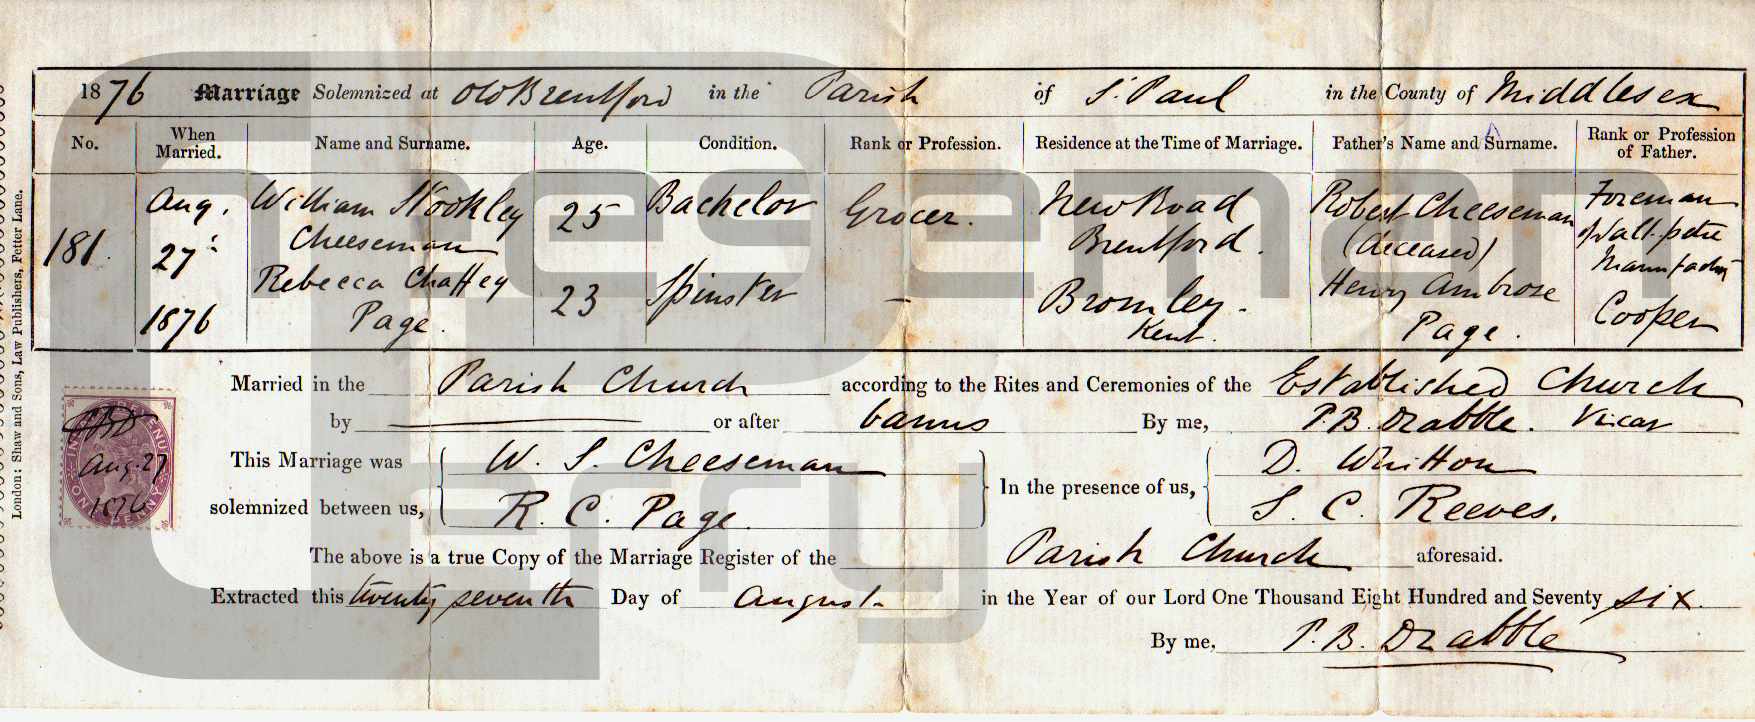 1876 Marriage Solemnized at Old Brentford in the Parish of S. Paul in the County of Middlesex
No. When Married. Name and Surname. Age. Condition. Rank or Profession. Residence at the Time of Marriage. Father's Name and Surname. Rank or Profession of Father.
181. Aug. 27 1876
William Stookley Cheeseman 25 Bachelor Grocer. New Road Brentford. Robert Cheeseman (deceased) Foreman Salt-petre
Rebecca Chaffey Page. 23 Spinster – Bromley. Kent. Henry Ambrose Page. Cooper
Married in the Parish Church according to the Rites and Ceremonies of the Established Church
by or after banns By me, P.B. Drabble. Vicar
This Marriage was solemnized between us, W. S. Cheeseman R. C. Page. In the presence of us, D. Whitton S. C. Reeves.
The above is a true Copy of the Marriage Register of the Parish Church aforesaid.
Extracted this twenty seventh Day of August in the Year of our Lord One Thousand Eight Hundred and Seventy six.
By me, P.B. Drabble
London: Shaw and Sons, Law Publishers, Fetter Lane.
INLAND REVENUE
ONE PENNY
Aug. 27
1876
Cheeseman
Terry